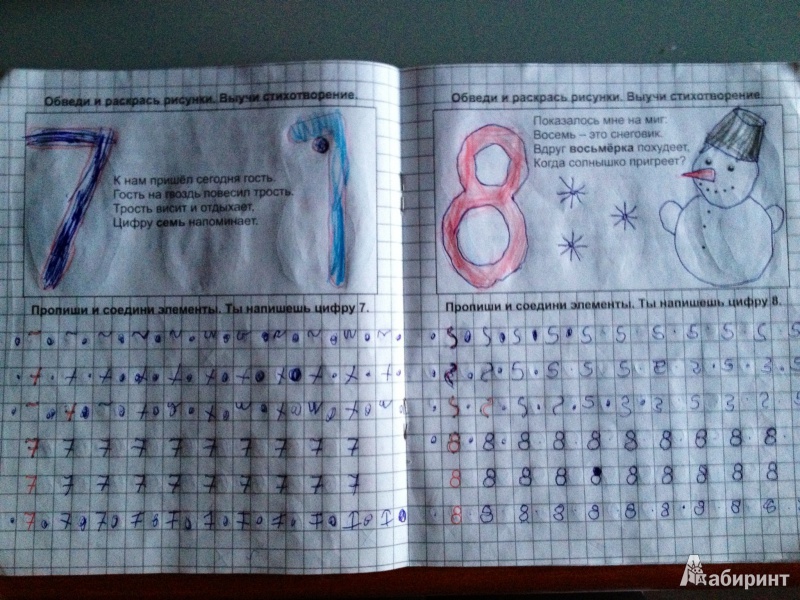 Обведи и раскрась рисунки. Выучи стихотворение.
7
К нам пришёл сегодня гость.
Гость на гвоздь повесил трость.
Трость висит и отдыхает.
Цифру семь напоминает.
Пропиши и соедини элементы. Ты напишешь цифру 7.
7 7 7 7 7 7 7 7 7 7
7 7 7 7 7 7 7 7 7 7
Обведи и раскрась рисунки. Выучи стихотворение.
8
Показалось мне на миг:
Восемь – это снеговик.
Вдруг восьмёрка похудеет,
Когда солнышко пригреет?
Пропиши и соедини элементы. Ты напишешь цифру 8.
8 8 8 8 8 8 8 8 8 8
8 8 8 8 8 8 8 8 8
8 8 8 8 8 8 8 8 8 8
Лабиринт